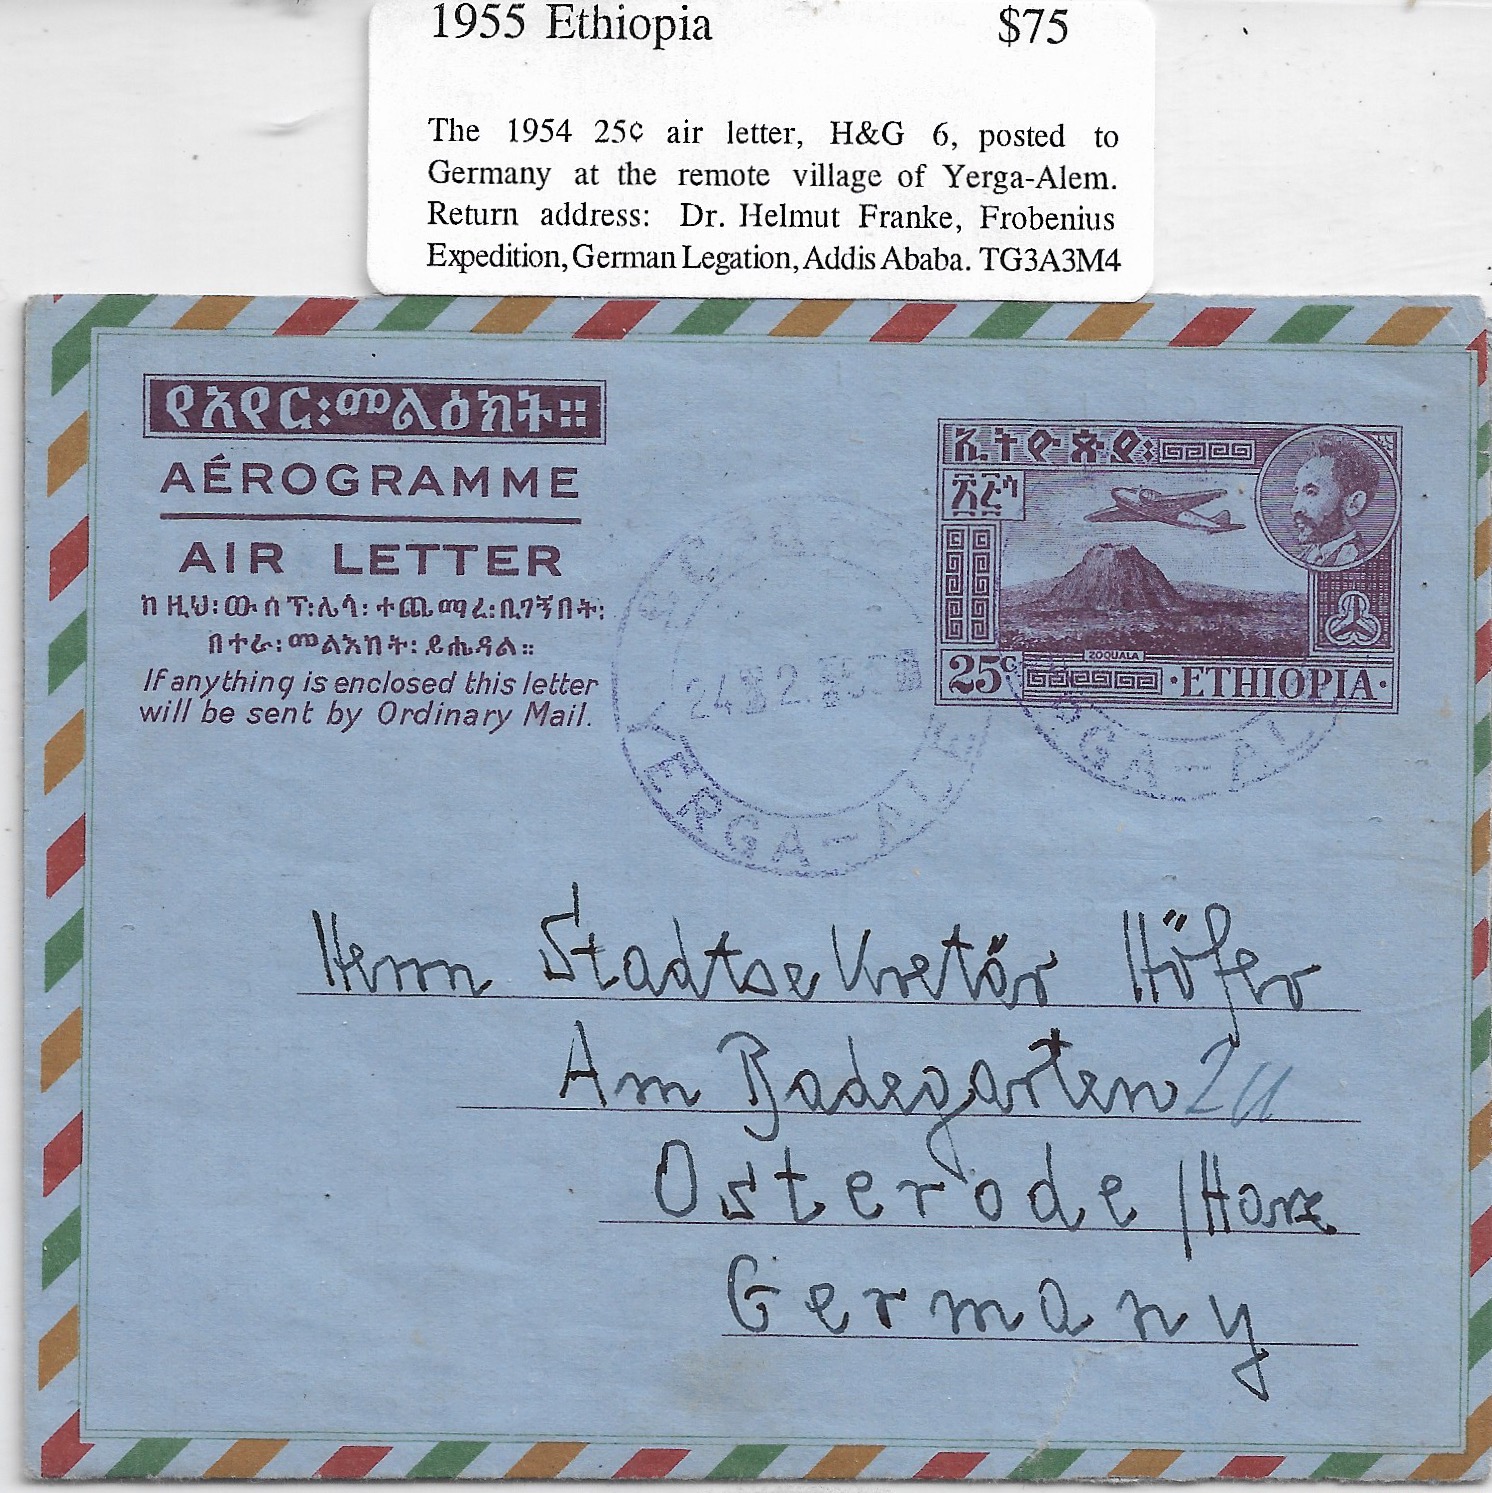 1955 Ethiopia $75
The 1954 25¢ air letter, H&G 6, posted to
Germany at the remote village of Yerga-Alem.
Return address: Dr. Helmut Franke, Frobenius
Expedition, German Legation, Addis Ababa. TG3A3M4
የአየር፡መልዕክት።
AÉROGRAMME
AIR LETTER
ከዚህ፡ውስጥ፡ሌላ፡ተጨማሪ፡ቢገኝበት፡
በተራ፡መልእክት፡ይሔዳል።
If anything is enclosed this letter
will be sent by Ordinary Mail.
ኢትዮጵያ፡
ZOQUALA
25c ·ETHIOPIA·
24 2 55
YERGA-ALE
RGA-AL
Herrn Stadtsekretär Höfer
Am Badegarten 2
Osterode/Harz
Germany